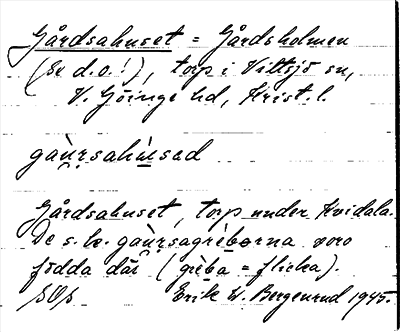 Gårdsahuset = Gårdsholmen
(Se d.o.!), torp i Vittsjö sn,
V. Göinge hd, Krist. l.
gaùr̥sahù̱sad
Gårdsahuset, torp under Kvidala.
De s. k. gaùr̥sagrèbǝrna voro
födda där (grèba = flicka).
SOS Erik W. Bergenrud 1945.